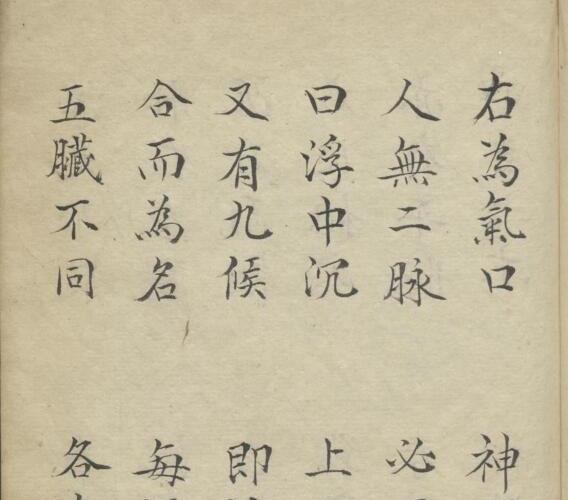 右為氣口　神
人無二脉　必
曰浮中沉　上
又有九候　即
合而為名　每
五臟不同　各